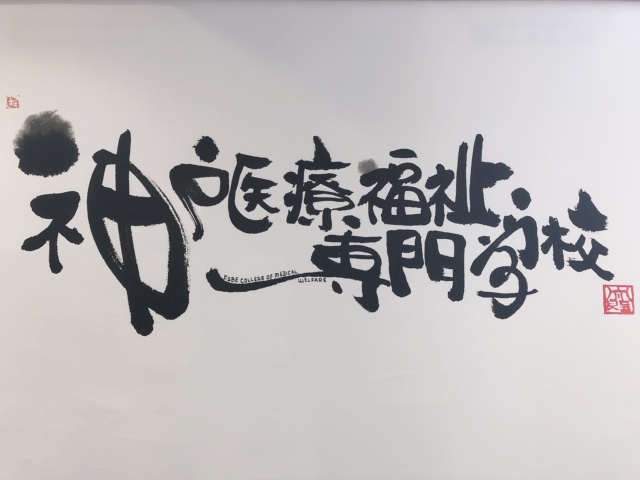 神戸医療福祉
専門学校
KOBE COLLEGE OF MEDICAL
WELFARE